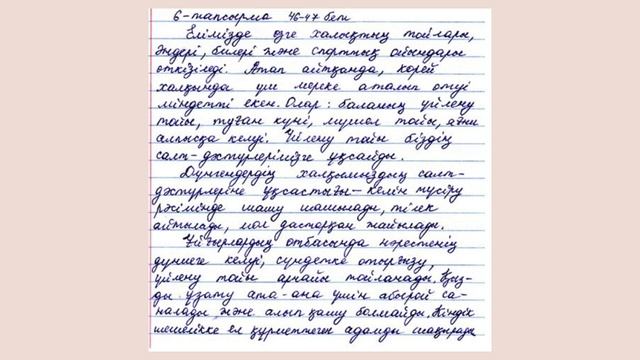 6-тапсырма 46-47 бет
Елімізде өзге халықтың тойлары,
әндері, билері және спорттық ойындары
өткізіледі. Атап айтқанда, корей
халқында үш мерке аталып өтуі
міндетті екен. Олар: баланың үйлену
тойы, туған күні, мүшел тойы, яғни
алпысқа келуі. Үйлену тойы біздің
салт-дәтүрлерімізге ұқсайды.
Дүнгендердің халқымыздың салт-
дәстүрлеріне ұқсастығы - келін түсіру
рәсімінде шашу шашылады, тілек
айтылады, мол дастарқан жайылады.
Ұйғырлардың отбасында нәрестенің
дүниеге келуі, сүндетке отырғызу,
үйлену тойы арнайы тойланады. Қыз-
ды ұзату ата-ана үшін абырой са-
налады және алып қашу болмайды. Кіндік
шешелікке ел құрметтеген адамды шақырады